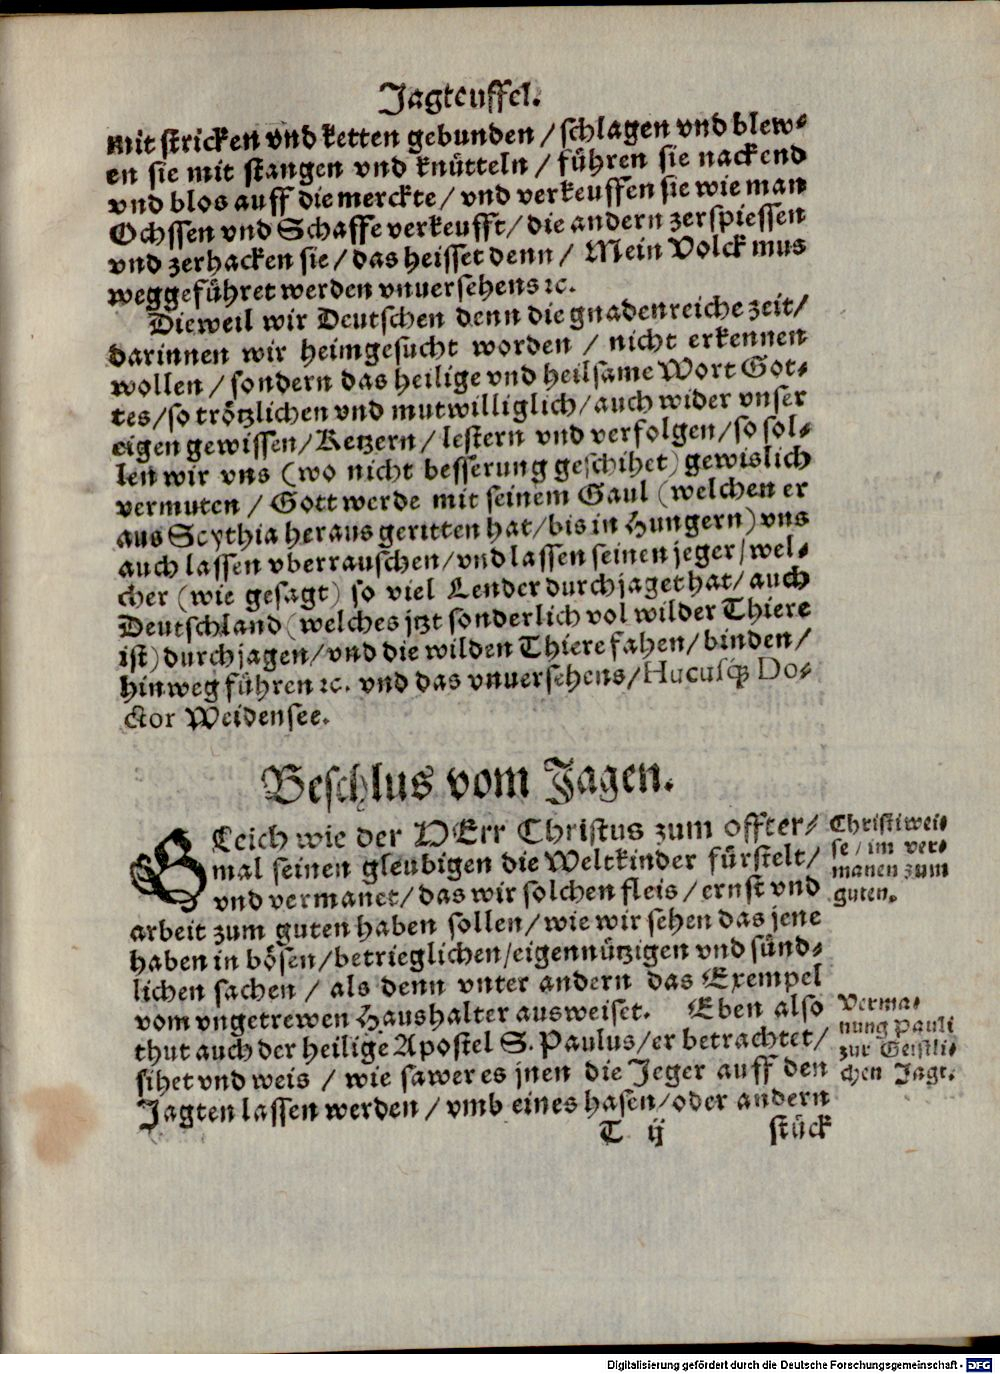 Jagteuffel.
mit stricken vnd ketten gebunden / schlagen vnd blew-
en sie mit stangen vnd knütteln / führen sie nackend
vnd blos auff die merckte / vnd verkeuffen sie wie man
Ochssen vnd Schaffe verkeufft / die andern zerspiessen
vnd zerhacken sie / das heisset denn / Mein Volck mus
weggeführet werden vnuersehens ꝛc.
Dieweil wir Deutschen denn die gnadenreiche zeit /
darinnen wir heimgesucht worden / nicht erkennen
wollen / sondern das heilige vnd heilsame Wort Got-
tes / so trötzlichen vnd mutwilliglich / auch wider vnser
eigen gewissen / Ketzern / lestern vnd verfolgen / so sol-
len wir vns (wo nicht besserung geschihet) gewislich
vermuten / Gott werde mit seinem Gaul (welchen er
aus Scythia heraus geritten hat / bis in Hungern) vns
auch lassen vberrauschen / vnd lassen seinen jeger / wel-
cher (wie gesagt) so viel Lender durchjaget hat / auch
Deutschland (welches jtzt sonderlich vol wilder Thiere
ist) durchjagen / vnd die wilden Thiere fahen / binden /
hinweg führen ꝛc. vnd das vnuersehens / Hucusq́; Do-
ctor Weidensee.
Beschlus vom Jagen.
GLeich wie der HErr Christus zum offter-
mal seinen gleubigen die Weltkinder fürstelt /
vnd vermanet / das wir solchen fleis / ernst vnd
arbeit zum guten haben sollen / wie wir sehen das jene
haben in bösen / betrieglichen / eigennützigen vnd sünd-
lichen sachen / als denn vnter andern das Exempel
vom vngetrewen Haushalter ausweiset. Eben also
thut auch der heilige Apostel S. Paulus / er betrachtet /
sihet vnd weis / wie sawer es jnen die Jeger auff den
Jagten lassen werden / vmb eines hasen / oder andern
T ij stück
Christi wei-
se / im ver-
manen zum
guten.
Verma-
nung Pauli
zur Geistli-
chen Jagt.
Digitalisierung gefördert durch die Deutsche Forschungsgemeinschaft - DFG